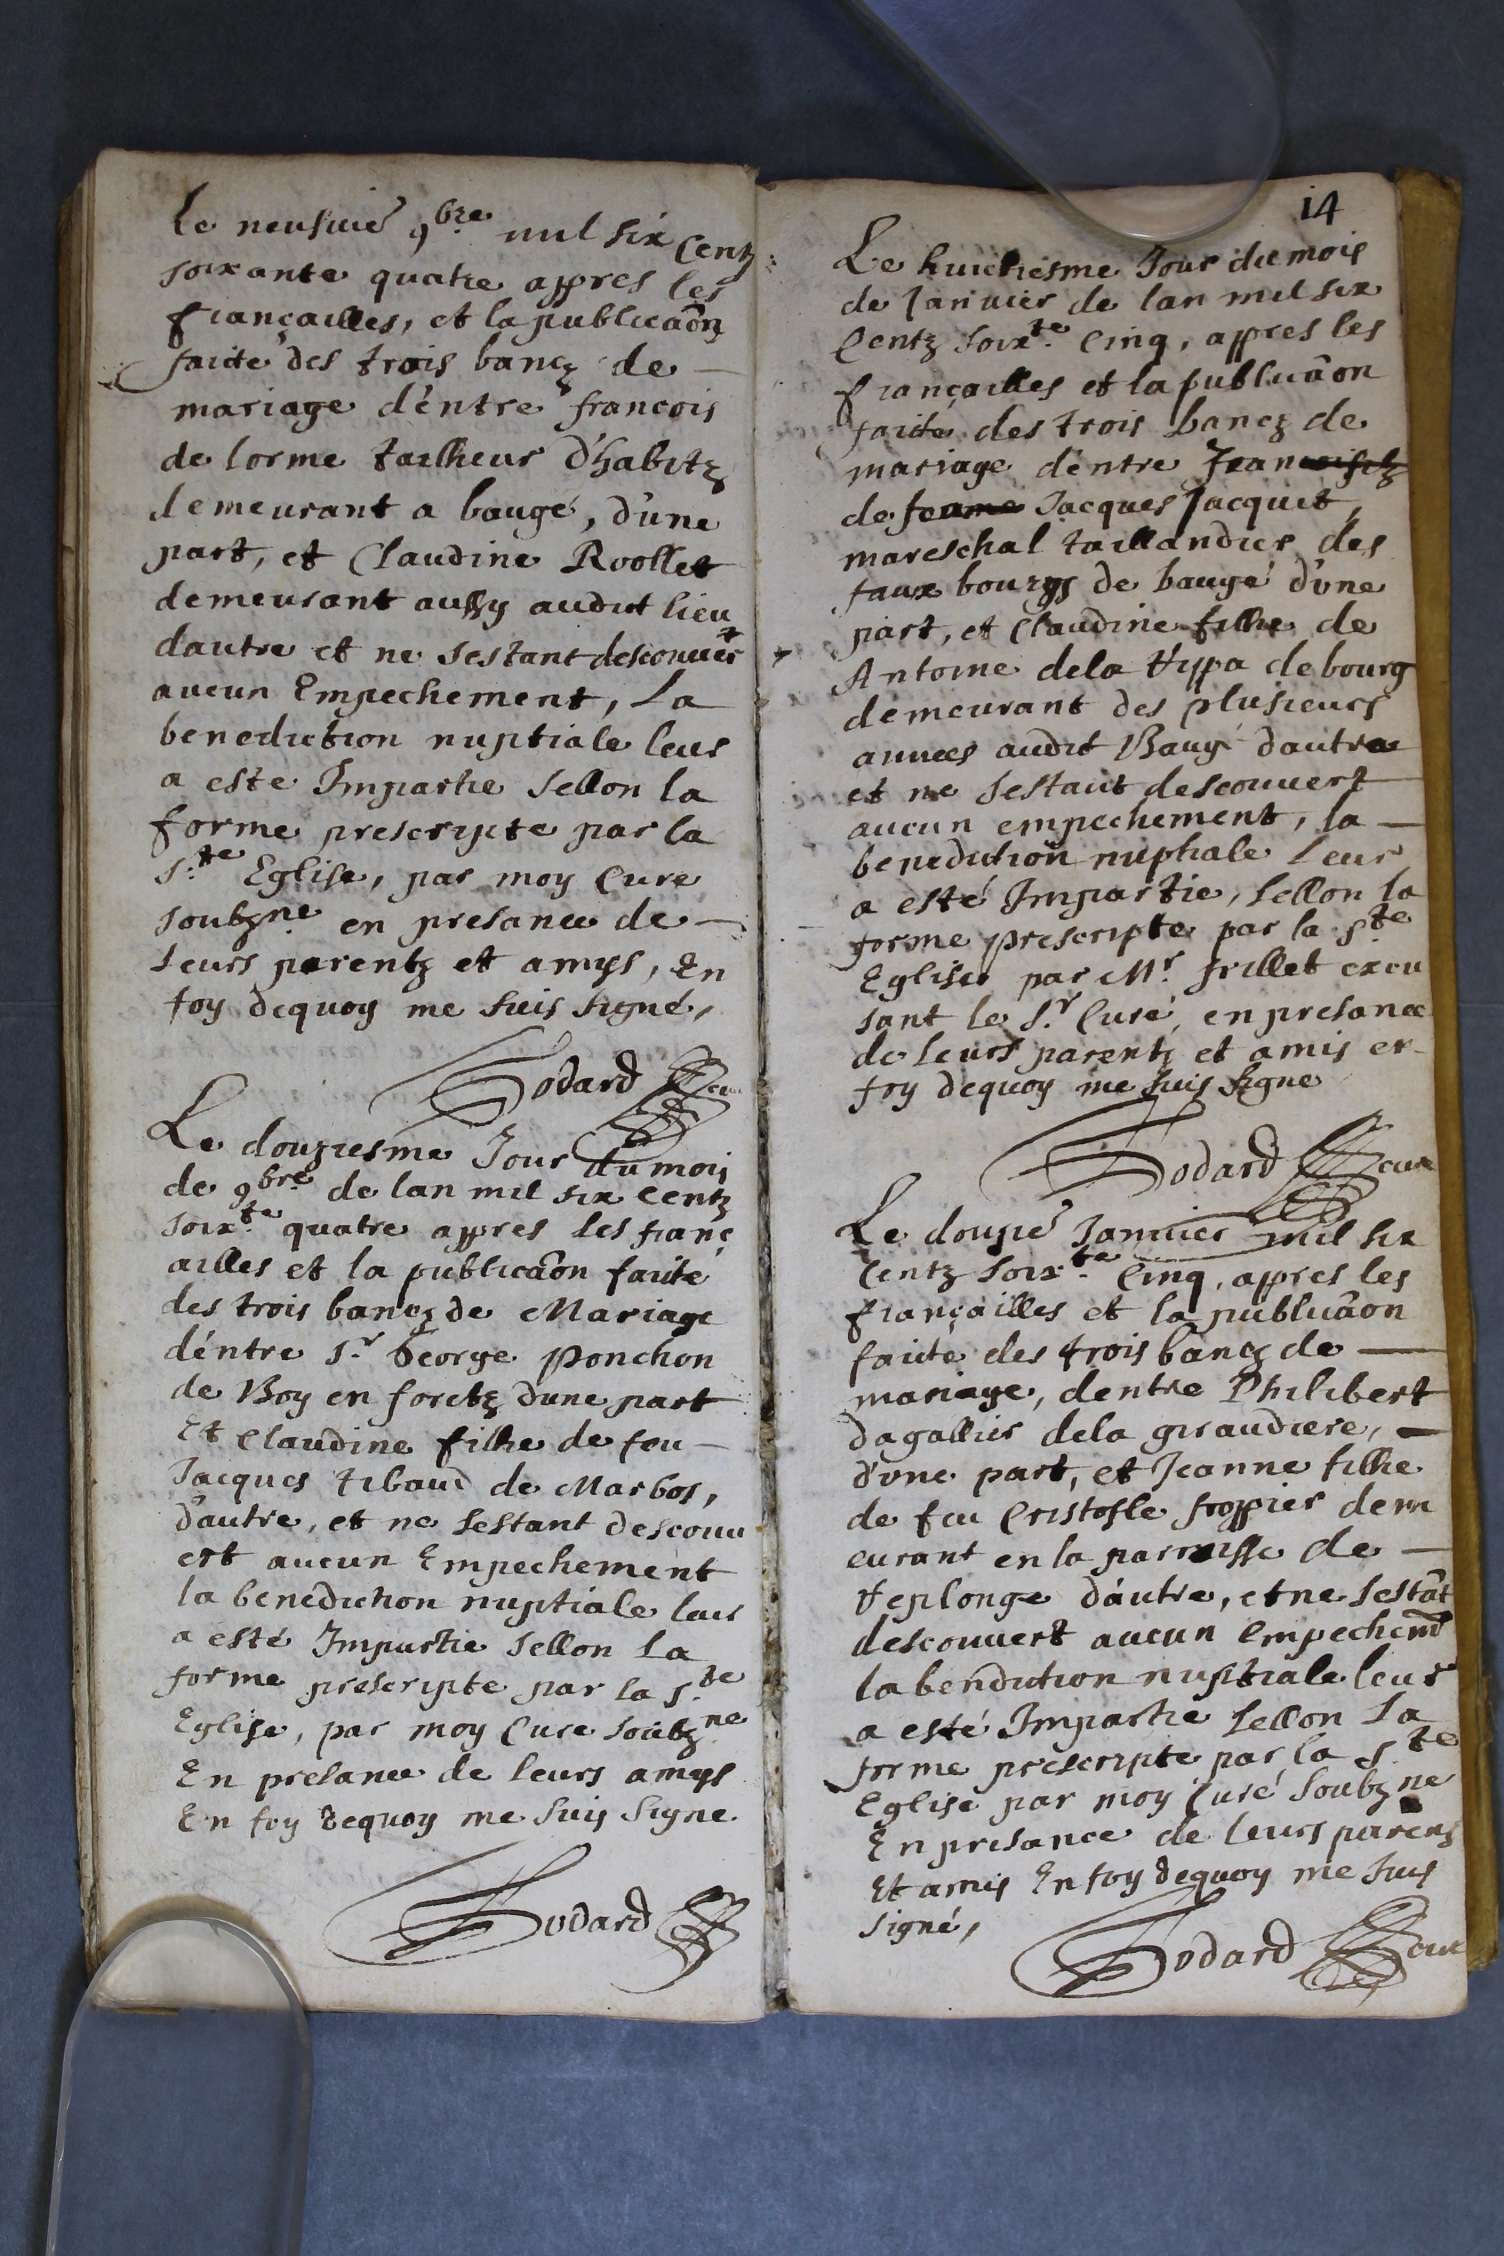 Le neufvie 9bre mil six Centz
soixante quatre appres les
fiançailles, et la publicaõn
faicte des trois bancz de
mariage d'entre francois
de lorme tailheur d'habitz
demeurant a baugé, d'une
part, et Claudine Roollet
demeurant aussy audict lieu
dautre et ne sestant descouvert
aucun Empechement, La
benediction nuptiale leur
a este Impartie sellon la
forme prescripte par la
S.te Eglise, par moy Cure
soubzne en presance de
leurs parentz et amys, En
foy dequoy me suis signé,
Godard cu
Le douziesme Jour du mois
de 9bre de lan mil six centz
soix.te quatre appres les fianç
ailles et la publicaõn faicte
des trois bancz de Mariage
d'entre S.r George Ponchon
de Boy en foretz dune part
Et Claudine filhe de feu
Jacques tibaud de Marbos,
d'autre, et ne sestant descouv
ert aucun Empechement
la benediction nuptiale leur
a esté Impartie sellon la
forme prescripte par la S.te
Eglise, par moy Cure soubz.ne
En presance de leurs amys
En foy dequoy me suis signe.
Godard
14
Le huictiesme Jour du mois
de Janvier de lan mil six
Centz soix.te Cinq, appres les
fiançailles et la publicaõn
faicte des trois bancz de
mariage d'entre
de Jacques Jacquet
mareschal taillandier des
faux bourgs de baugé d'une
part, et Claudine filhe de
Antoine dela Typpa de bourg
demeurant des plusieurs
annees audit Baugé dautre
et ne sestant descouvert
aucun empechement, la
benediction nuptiale Leur
a esté Impartie, sellon la
forme prescripte par la S.te
Eglise par Mr. frillet excu
sant le S.r Curé, en presance
de leurs parentz et amis en
foy dequoy me suis signe
Godard cure
Le douzie Janvier mil six
Centz soix.te Cinq, appres les
fiançailles et la publicaõn
faicte des trois bancz de
mariage, dentre Philibert
dagallier dela giraudiere,
d'une part, et Jeanne filhe
de feu Cristofle froppier dem
eurant en la parroisse de
Veplonge d'autre, et ne sestãt
descouvert aucun empechemt
la bendiction nuptiale leur
a esté Impartie sellon la
forme prescripte par la S.te
Eglise par moy Curé soubzne
En presance de leurs parens
Et amis En foy dequoy me suis
signé,
Godard cure